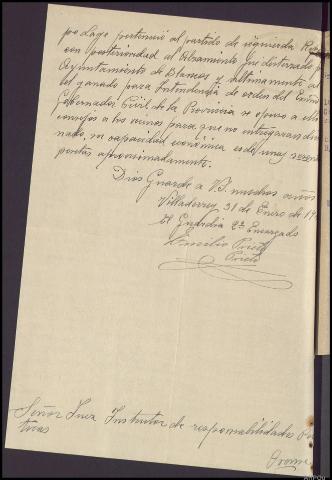 po Lago perteneció al partido de izquierda Re
con posterioridad al Alzamiento fue desterrado p
Ayuntamiento de Blancos y ultimamente al
del ganado para Intendencia de orden del Exmo
Gobernador Civil de la Provincia se opuso a ello
consejos a los vecinos para que no entregaran
nado, su capacidad económica es de unas
pesetas aproximadamente.
Dios Guarde a V.S. muchos años
Villaderrey, 31 de Enero de 19
El Guardia 2º Encargado
Emilio Prieto
Prieto
Señor Juez Instructor de responsabilidades Po
ticas
Orense